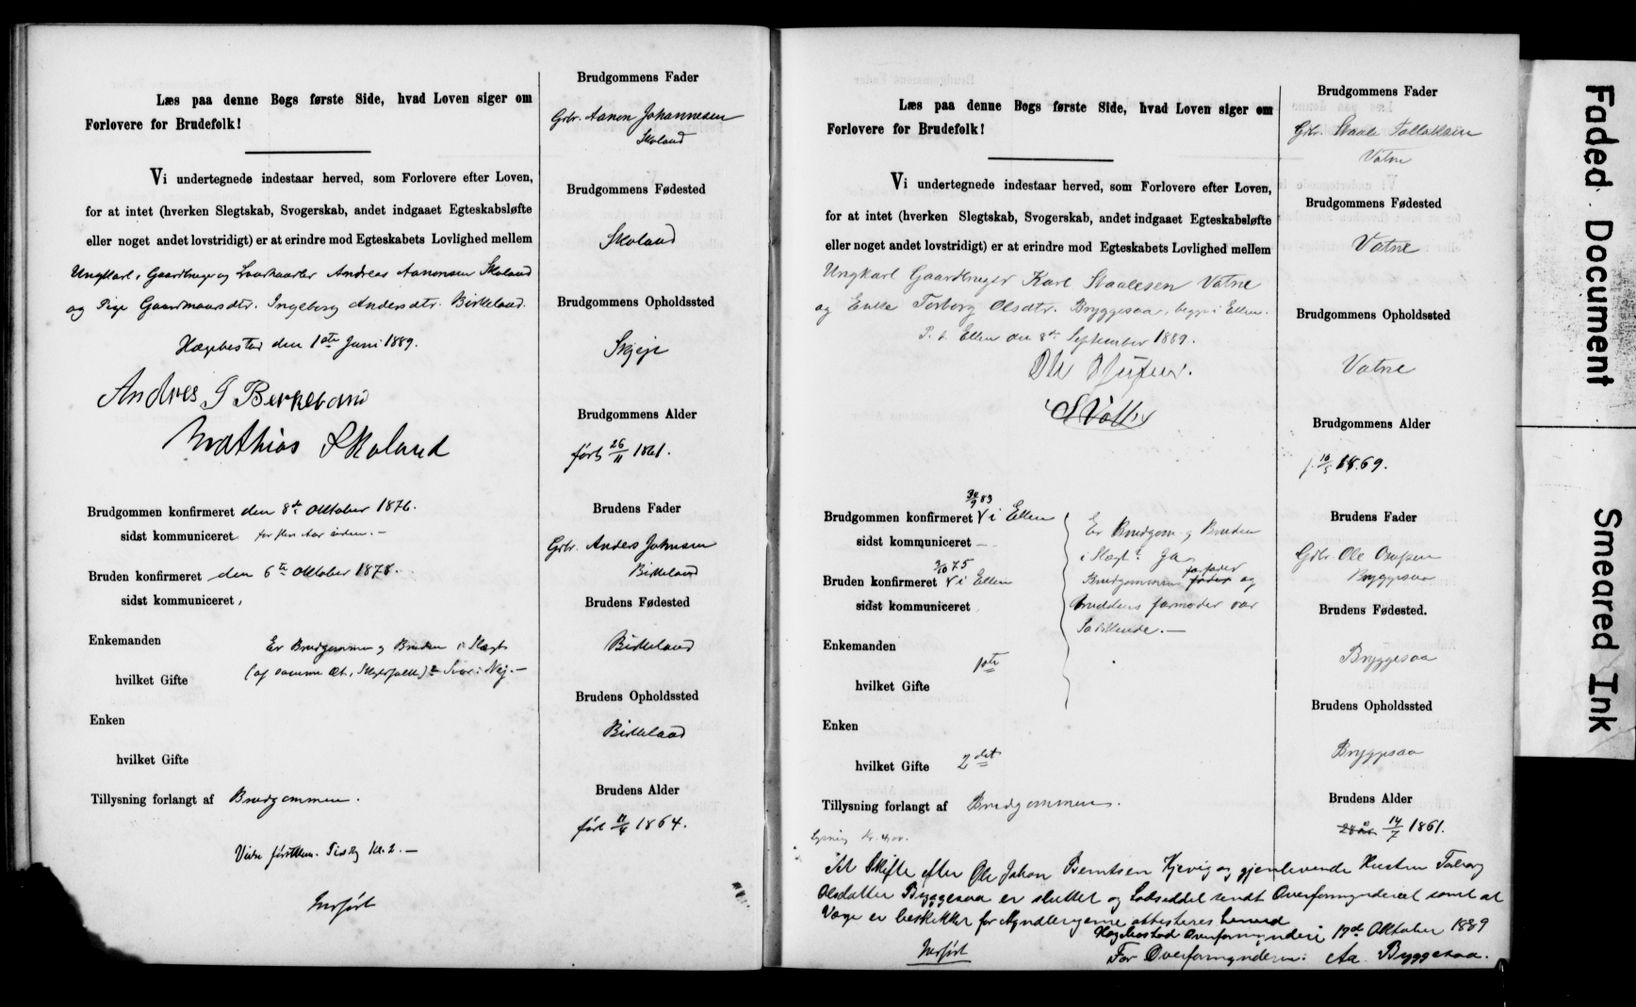 Læs paa denne Bogs første Side, hvad Loven siger om
Forlovere for Brudefolk!
Vi undertegnede indestaar herved, som Forlovere efter Loven,
for at intet (hverken Slegtskab, Svogerskab, andet indgaaet Egteskabsløfte
eller noget andet lovstridigt) er at erindre mod Egteskabets Lovlighed mellem
Ungkarl, Gaardbruger og Andreas Aanensen Skoland
og Pige Gaardmandsdtr. Ingeborg Andersdtr. Birkeland.
Hægebostad den 1ste Juni 1889.
Andres J Berkeland
Mathias Skoland
Brudgommen konfirmeret den 8de Oktober 1876.
sidst kommuniceret for flere Aar siden. -
Bruden konfirmeret den 6te Oktober 1878.
sidst kommuniceret,
Enkemanden
Er Brudgommen og Bruden i Slægt
hvilket Gifte
(af samme Æt, ? Svar: Nej. -
Enken
hvilket Gifte
Tillysning forlangt af Brudgommen.
Kr. 2. -
Indført
Brudgommens Fader
Gbr. Aanen Johannesen
Skoland
Brudgommens Fødested
Skoland
Brudgommens Opholdssted
Skjeje
Brudgommens Alder
født 26/11 1861.
Brudens Fader
Gbr. Anders Johnsen
Birkeland
Brudens Fødested
Birkeland
Brudens Opholdssted
Birkeland
Brudens Alder
født 11/8 1864.
Læs paa denne Bogs første Side, hvad Loven siger om
Forlovere for Brudefolk!
Vi undertegnede indestaar herved, som Forlovere efter Loven,
for at intet (hverken Slegtskab, Svogerskab, andet indgaaet Egteskabsløfte
eller noget andet lovstridigt) er at erindre mod Egteskabets Lovlighed mellem
Ungkarl Gaardbruger Karl Staalesen Vatne
og Enke Torborg Olsdtr. Bryggesaa, begge i Eiken.
P. t. Eiken den 8de September 1889.
Brudgommen konfirmeret 30/9 83 i Eiken
sidst kommuniceret -
Bruden konfirmeret 3/10 75 i Eiken
sidst kommuniceret
Er Brudgom og Bruden
i Slægt? Ja,
Brudgommens farfader og
Brudens farmoder var
Sødskende. -
Enkemanden
1ste
hvilket Gifte
Enken
hvilket Gifte 2det
Tillysning forlangt af Brudgommen.
Lysning Kr. 4,00.
At Skifte efter Ole Johan Berntsen Kjevig og gjenlevende Hustru Torborg
Olsdatter Bryggesaa er sluttet og Lodseddel sendt Overformynderiet samt at
Værge er beskikket for Myndlingerne attesteres herved
Hægebostad Overformynderi 17de Oktober 1889
For Overformynderne: Aa. Byggesaa.
Indført
Brudgommens Fader
Gbr. Staale Tallaksen
Vatne
Brudgommens Fødested
Vatne
Brudgommens Opholdssted
Vatne
Brudgommens Alder
f. 10/5 1869.
Brudens Fader
Gbr. Ole Osufsen
Bryggesaa
Brudens Fødested.
Bryggesaa
Brudens Opholdssted
Bryggesaa
Brudens Alder
28 år 14/7 1861.
Faded Document
Smeared Ink